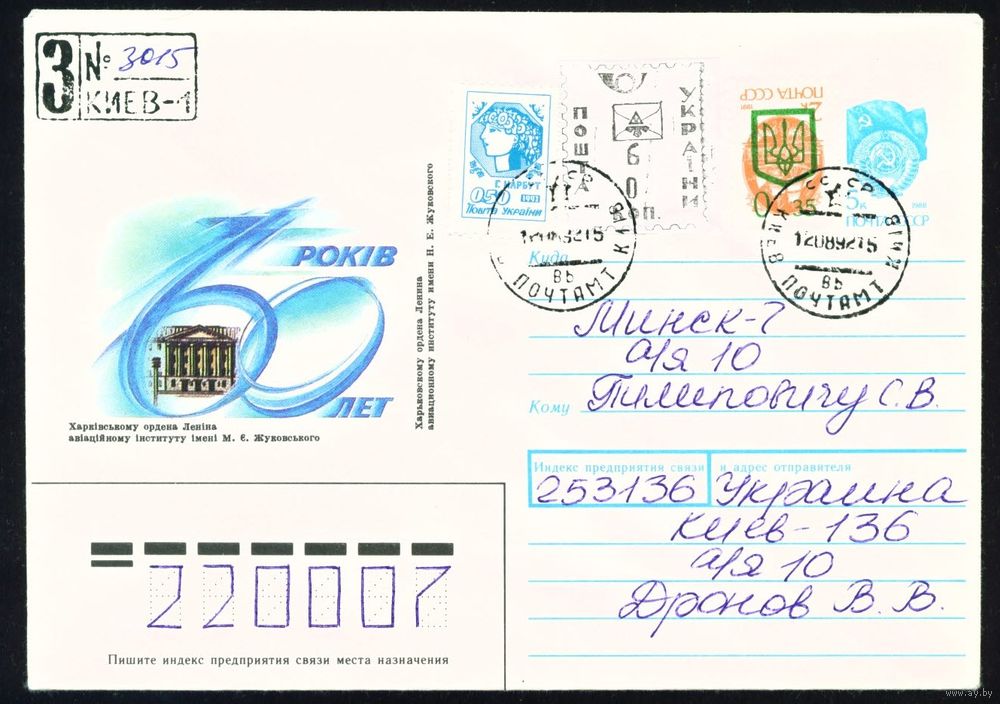 З № 3015
КИЕВ-1
Г. НАРБУТ
0-50 1992
Пошта України
ПОШТА
УКРАЇНИ
60
ПОЧТА СССР
35
5к
1988
ПОЧТА СССР
КИЕВ ПОЧТАМТ КИЇВ
ВБ
СССР
КИЕВ 1208921 5 КИЇВ
ВБ
ПОЧТАМТ
60
РОКІВ
ЛЕТ
Харківському ордена Леніна
авіаційному інституту імені М. Є. Жуковського
Харьковскому ордена Ленина
авиационному институту имени Н. Е. Жуковского
Куда
Минск-7
а/я 10
Кому Тилиповичу С. В.
Индекс предприятия связи и адрес отправителя
253136 Украина
Киев-136
а/я 10
Дронов В. В.
220007
Пишите индекс предприятия связи места назначения
www.ay.by